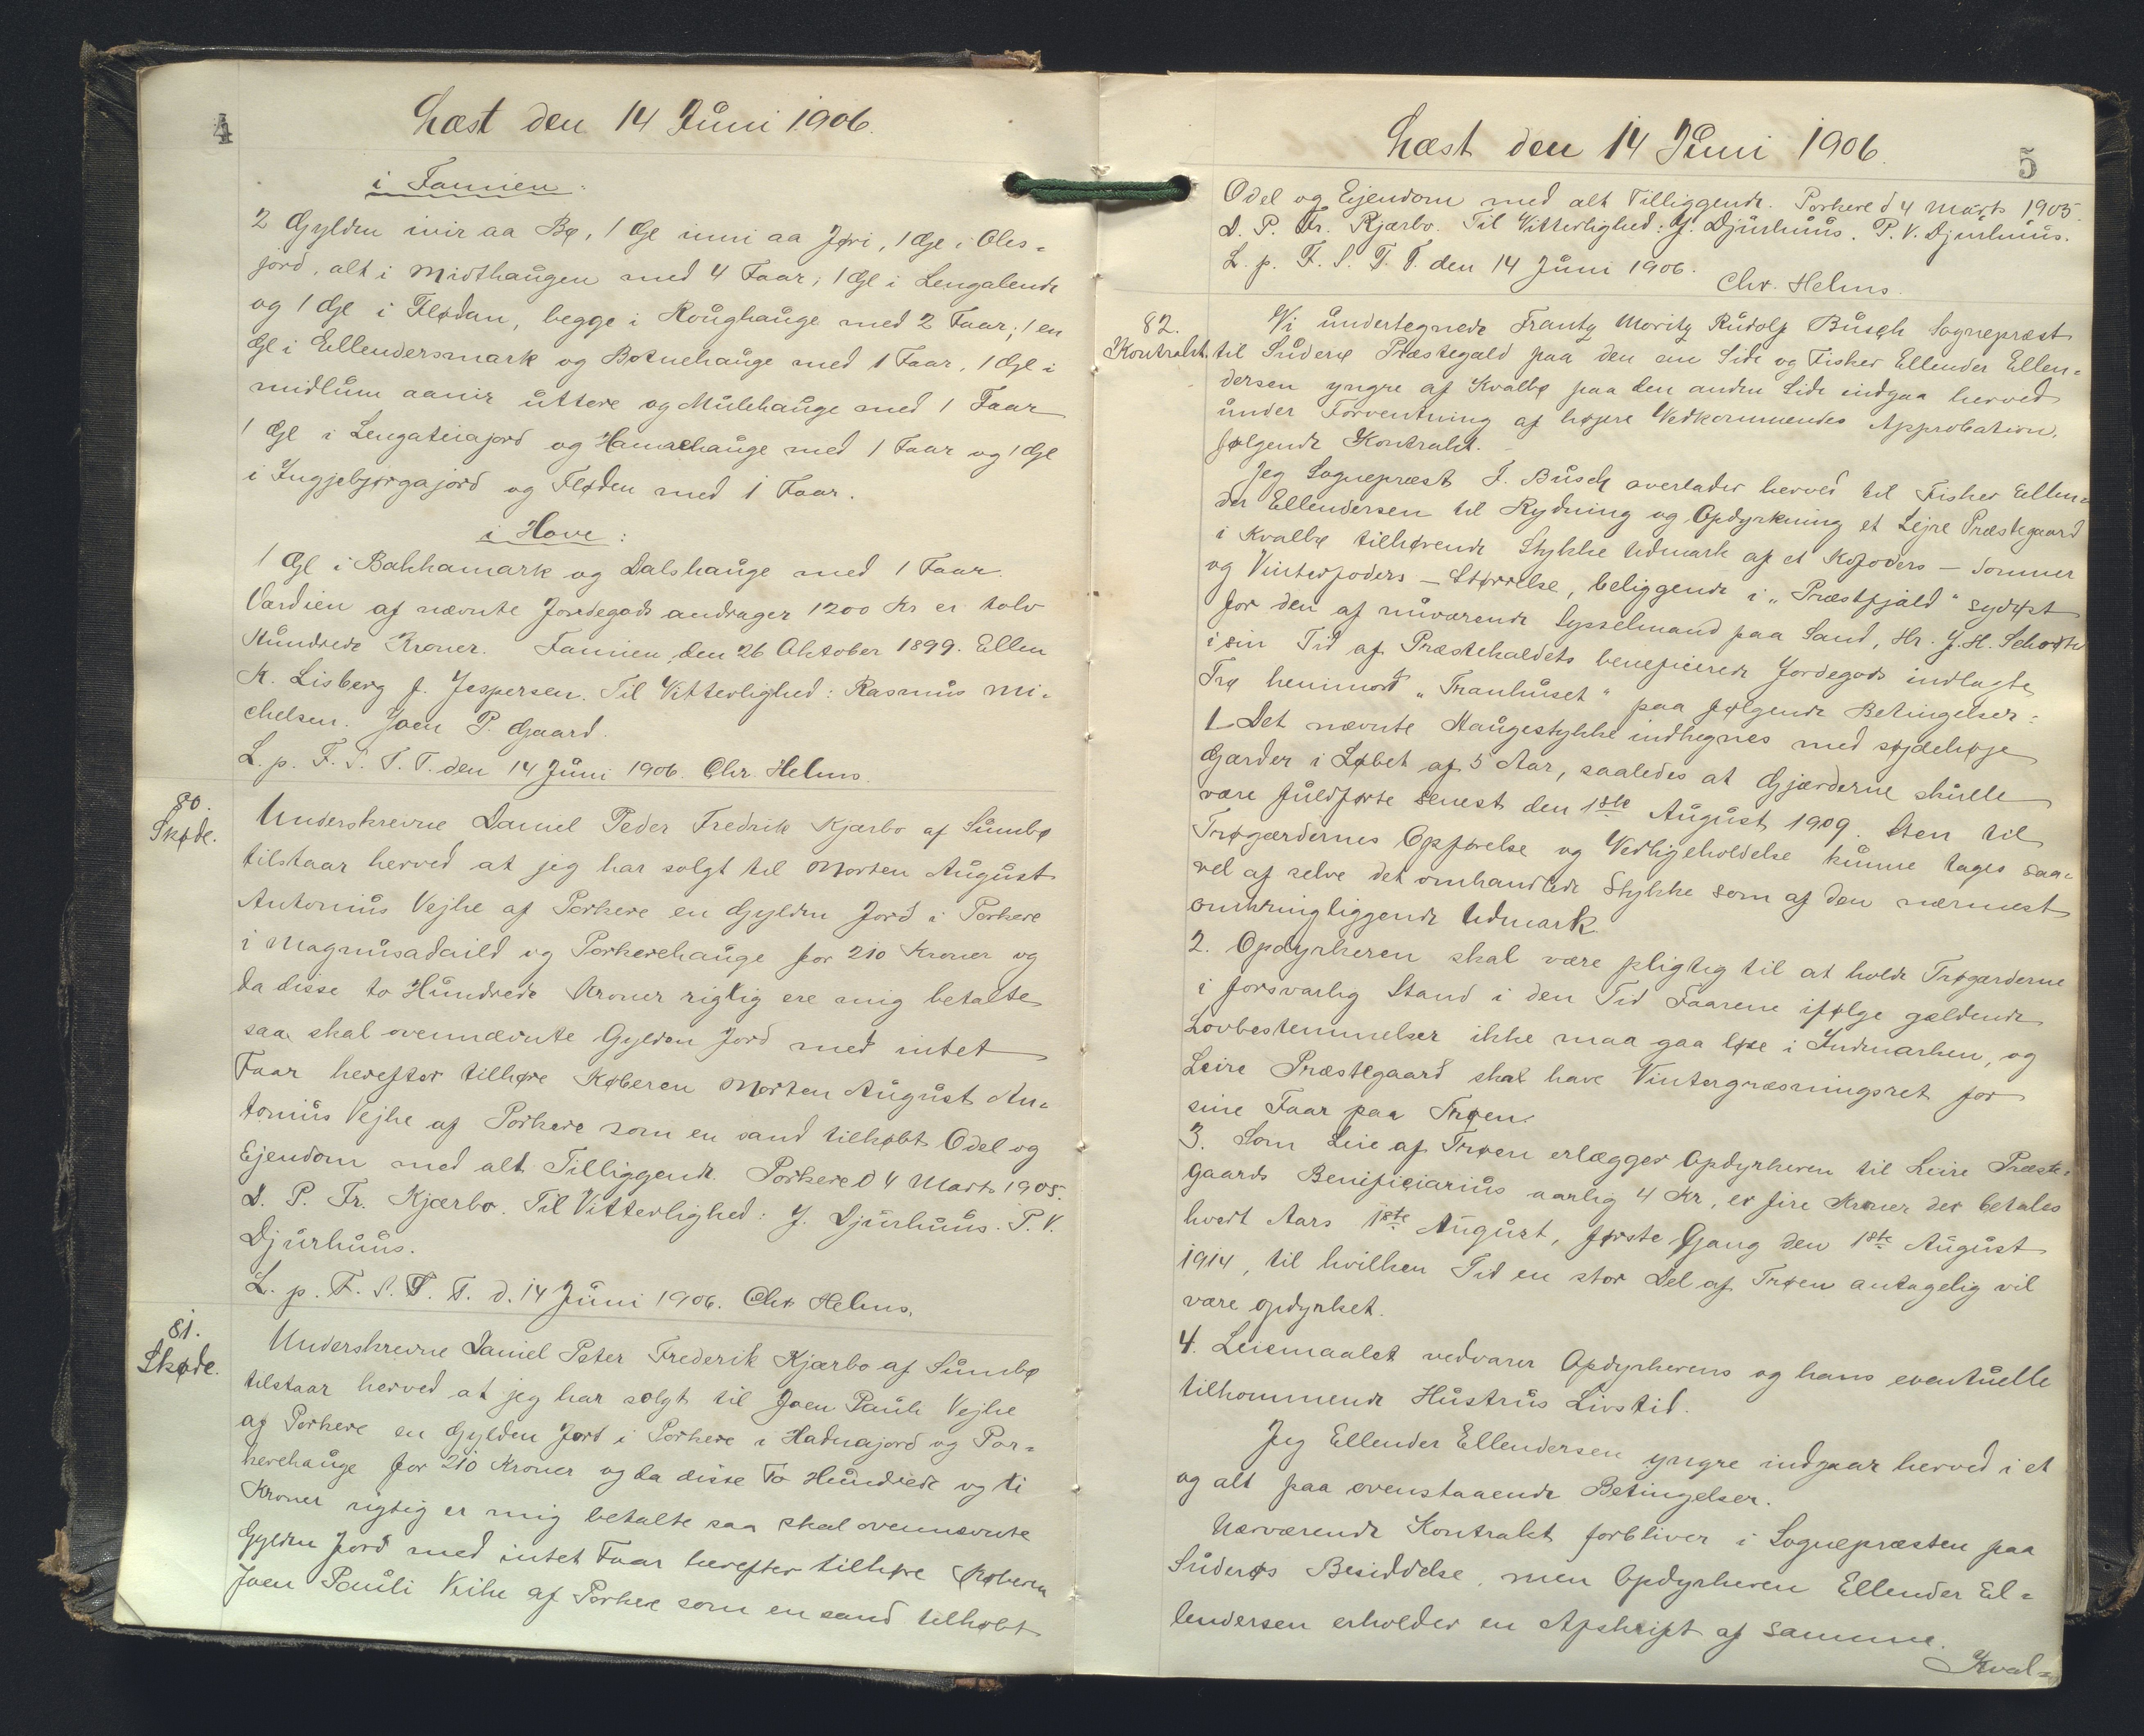 4
Læst den 14 Juni 1906.
i Famien:
2 Gylden inir aa Bø, 1 Gl inni aa Jøri, 1 Gl i Oles=
jord, alt i Midthaugen med 4 Faar; 1 Gl i Lengalendi
og 1 Gl i Flødan, begge i Roughauge med 2 Faar; 1 en
Gl i Ellendersmark og Botnehauge med 1 Faar, 1 Gl i
midlum aanir uttere og Mulehauge med 1 Faar
1 Gl i Lengateiajord og Hamrehauge med 1 Faar og 1 Gl
i Ingjebjørgajord og Fløden med 1 Faar.
i Hove:
1 Gl i Bakkamark og Dalshauge med 1 Faar.
Værdien af nævnte Jordegods andrager 1200 Kr er tolv
Hundrede Kroner. Famien, den 26 Oktober 1899. Ellen
K. Lisberg f. Jespersen. Til Vitterlighed: Rasmus Mi=
chelsen. Joen P. Gaard.
L. p. F. S. T. T. den 14 Juni 1906. Chr. Helms.
80.
Skøde.
Underskrevne Daniel Peder Fredrik Kjærbo af Sumbø
tilstaar herved at jeg har solgt til Morten August
Antonius Vejhe af Porkere en Gylden Jord i Porkere
i Magnusadaild og Porkerehauge for 210 Kroner og
da disse to Hundrede Kroner rigtig ere mig betalte
saa skal ovennævnte Gylden Jord med intet
Faar herefter tilhøre Køberen Morten August An=
tonius Vejhe af Porkere som en sand tilkøbt Odel og
Ejendom med alt Tilliggende. Porkere d 4 Marts 1905.
D. P. Fr. Kjærbo. Til Vitterlighed: J. Djurhuus. P. V.
Djurhuus.
L. p. F. S. T. T. d. 14 Juni 1906. Chr Helms.
81.
Skøde.
Underskrevne Daniel Peter Frederik Kjærbo af Sumbø
tilstaar herved at jeg har solgt til Joen Pauli Vejhe
af Porkere en Gylden Jord i Porkere i Hadnajord og Por=
kerehauge for 210 Kroner og da disse To Hundrede og ti
Kroner rigtig er mig betalte saa skal ovennævnte
Gylden Jord med intet Faar herefter tilhøre Køberen
Joen Pauli Veihe af Porkere som en sand tilkøbt
5
Læst den 14 Juni 1906.
Odel og Ejendom med alt Tilliggende. Porkere d 4 Marts 1905.
D. P. Fr. Kjærbo. Til Vitterlighed: J. Djurhuus. P. V. Djurhuus.
L. p. F. S. T. T. den 14 Juni 1906.
Chr. Helms.
82.
Kontrakt.
Vi undertegnede Frantz Moritz Rudolf Busch Sognepræst
til Suderø Præstegæld paa den ene Side og Fisker Ellender Ellen=
dersen yngre af Kvalbø paa den anden Side indgaa herved
under Forventning af højere Vedkommendes Approbation,
følgende Kontrakt.
Jeg Sognepræst F. Busch overlader herved til Fisker Ellen=
der Ellendersen til Rydning og Opdyrkning et Lejre Præstegaard
i Kvalbø tilhørende Stykke Udmark af et Kofoders — Sommer
og Vinterfoders — Størrelse, beliggende i "Præstfjald" sydøst
for den af nuværende Sysselmand paa Sand, Hr. J. H. Schrøter
i sin Tid af Præstekaldets beneficerede Jordegods indlagte
Trø henimod "Tranhuset" paa følgende Betingelser:
1. Det nævnte Haugestykke indhegnes med søjdehøje
Gærder i Løbet af 5 Aar, saaledes at Gjærderne skulle
være fuldførte senest den 1ste August 1909. Sten til
Trøgærdernes Opførelse og Vedligeholdelse kunne tages saa=
vel af selve det omhandlede Stykke som af den nærmest
omkringliggende Udmark.
2. Opdyrkeren skal være pligtig til at holde Trøgærderne
i forsvarlig Stand i den Tid Faarene ifølge gældende
Lovbestemmelser ikke maa gaa løse i Indmarken, og
Leire Præstegaard skal have Vintergræsningsret for
sine Faar paa Trøen.
3. Som Leie af Trøen erlægger Opdyrkeren til Leire Præste=
gaards Beneficiarius aarlig 4 Kr, er fire Kroner der betales
hvert Aars 1ste August, første Gang den 1ste August
1914, til hvilken Tid en stor Del af Trøen antagelig vil
være opdyrket.
4. Leiemaalet vedvarer Opdyrkerens og hans eventuelle
tilkommende Hustrus Livstid.
Jeg Ellender Ellendersen yngre indgaar herved i et
og alt paa ovenstaaende Betingelser.
Nærværende Kontrakt forbliver i Sognepræsten paa
Suderøs Besiddelse, men Opdyrkeren Ellender El=
lendersen erholder en Afskrift af samme.
Kval=